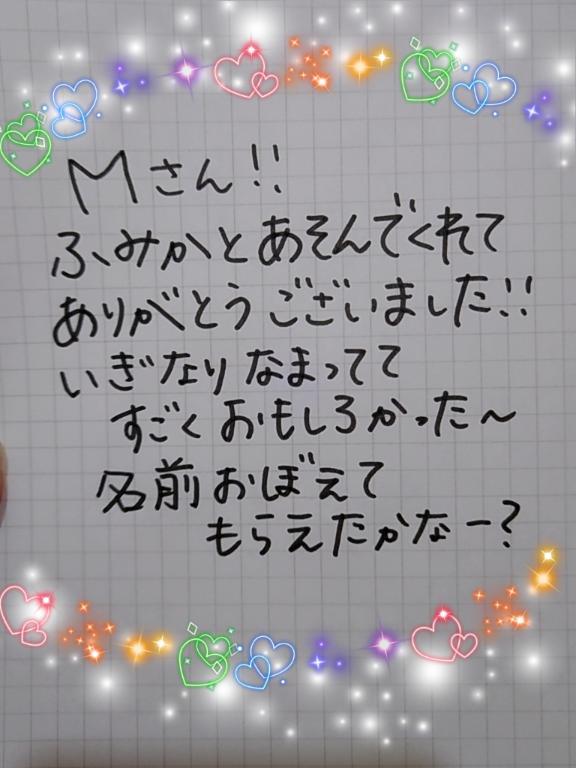 Mさん!!
ふみかとあそんでくれて
ありがとうございました!!
いぎなりなまってて
すごくおもしろかった〜
名前おぼえて
もらえたかなー?